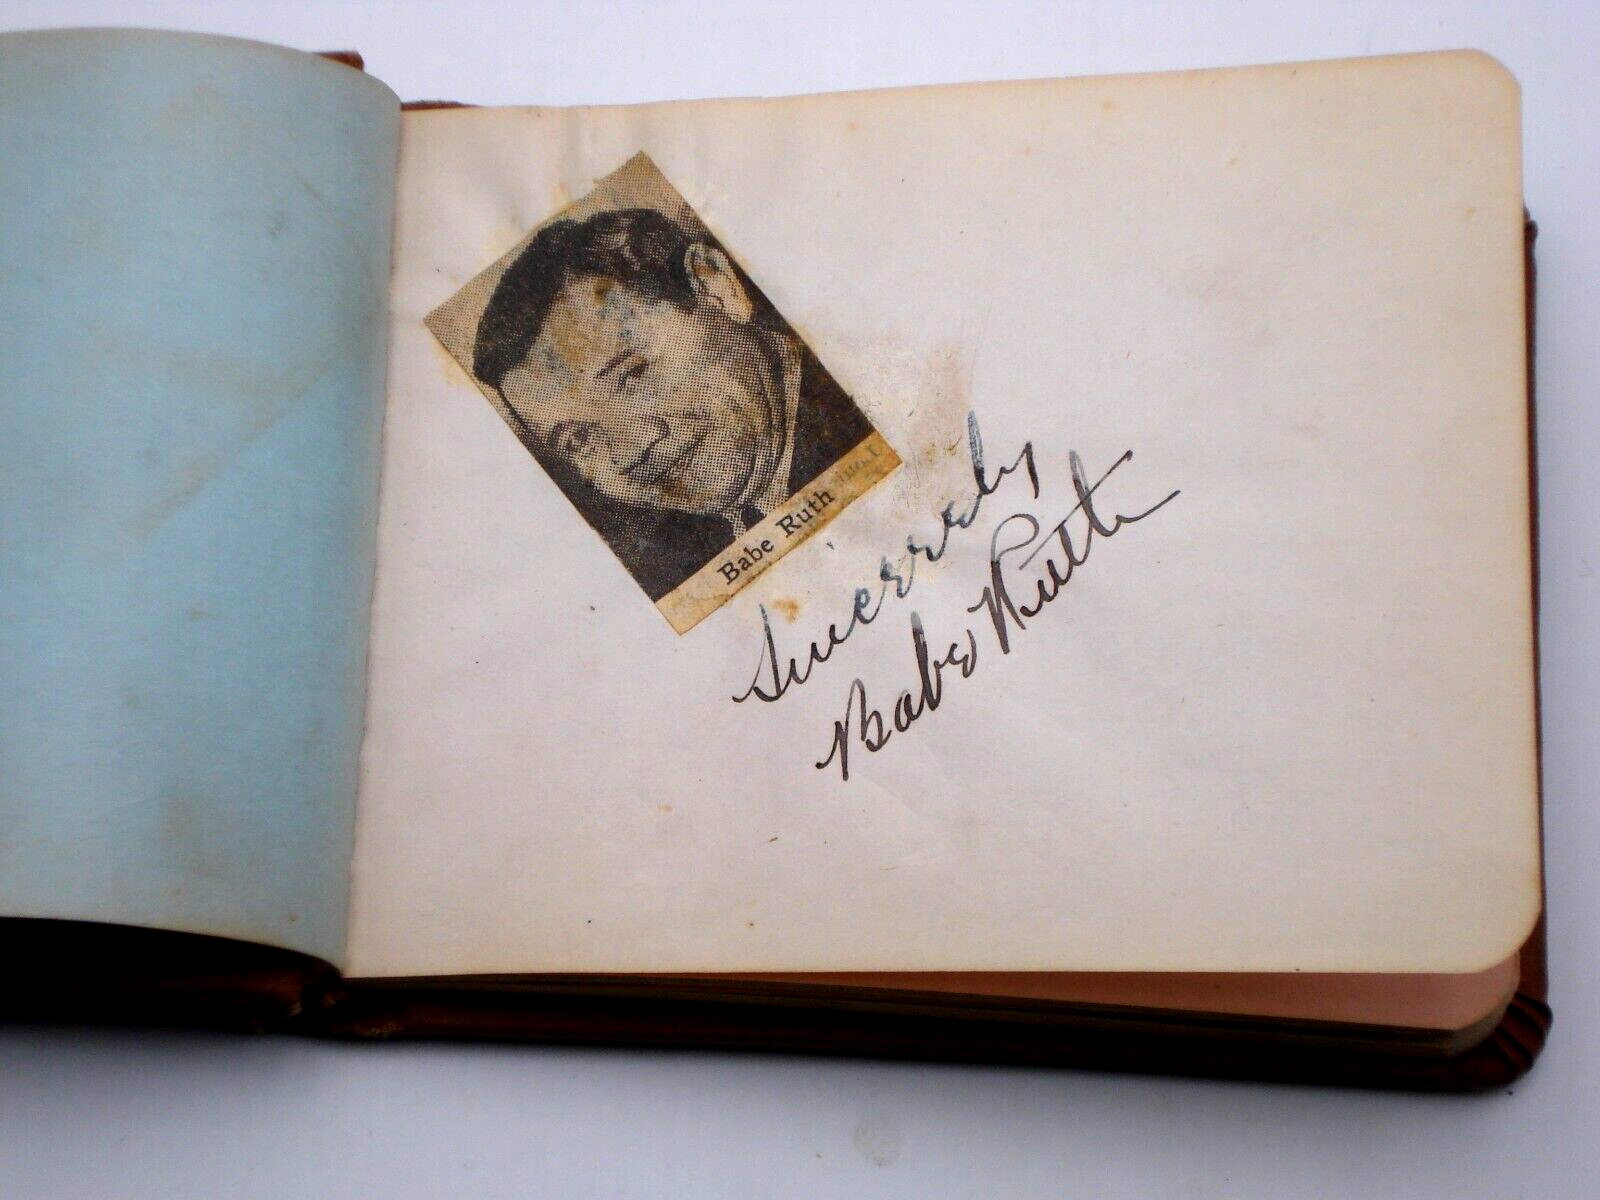 Babe Ruth
Sincerely
Babe Ruth